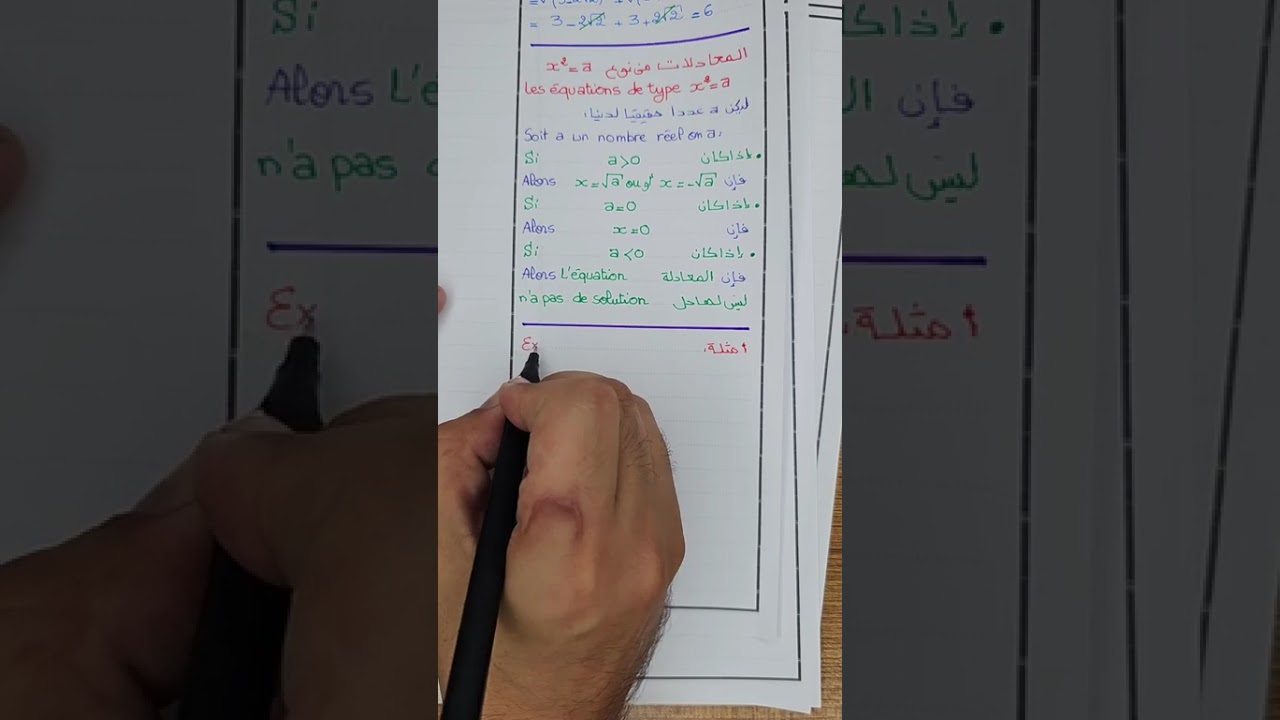 = 3 - 2√2 + 3 + 2√2 = 6
المعادلات من نوع x² = a
Les équations de type x² = a
ليكن a عددا حقيقيا لدينا:
Soit a un nombre réel on a:
Si a > 0 • إذا كان
Alors x = √a ou أو x = -√a فإن
Si a = 0 • إذا كان
Alors x = 0 فإن
Si a < 0 • إذا كان
Alors L'équation فإن المعادلة
n'a pas de solution ليس لها حل
Ex أمثلة: